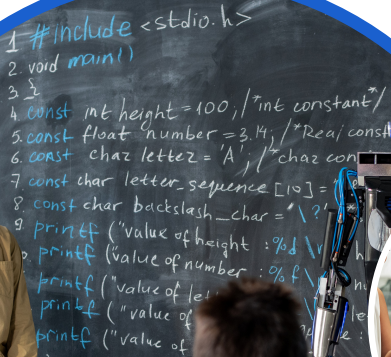 1 #include <stdio.h>
2. void main()
3 {
4 const int height = 100; /*int constant*/
5. const float number = 3.14; /*Real const
6. const char letter = 'A'; /*char con
7 const char letter_sequence [10] =
8 const char backslash_char = '\?'
9. printf ("value of height : %d \
printf ("value of number : %f \
printf ("value of
printf ("value of
printf ("value of